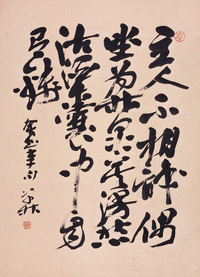 主人不相識偶
坐為林泉莫謾愁
沽酒囊中自
有錢
賀知章句